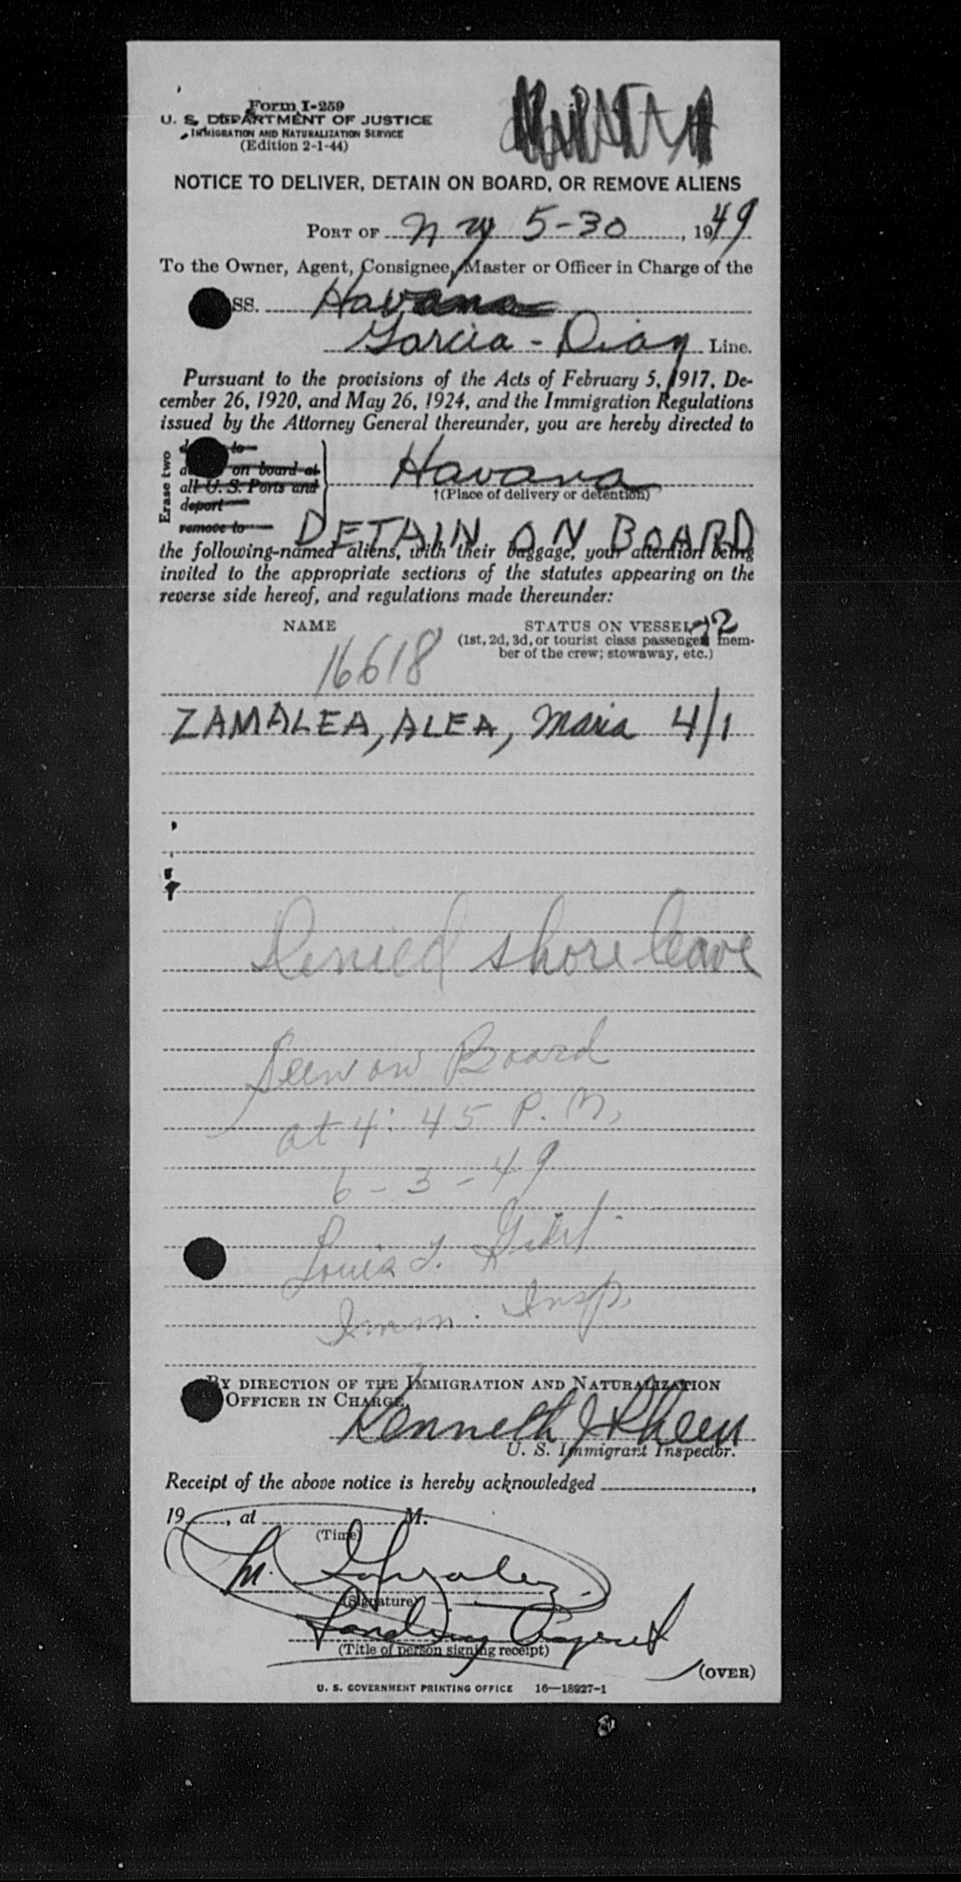 Form I-259
U. S. DEPARTMENT OF JUSTICE
IMMIGRATION AND NATURALIZATION SERVICE
(Edition 2-1-44)
NOTICE TO DELIVER, DETAIN ON BOARD, OR REMOVE ALIENS
PORT OF N Y 5-30, 1949
To the Owner, Agent, Consignee, Master or Officer in Charge of the
SS. Havana
Garcia - Diaz Line.
Pursuant to the provisions of the Acts of February 5, 1917, De-
cember 26, 1920, and May 26, 1924, and the Immigration Regulations
issued by the Attorney General thereunder, you are hereby directed to
Erase two
to
on board at
all U. S. Ports and
deport
remove to
Havana
†(Place of delivery or detention)
DETAIN ON BOARD
the following-named aliens, with their baggage, your attention being
invited to the appropriate sections of the statutes appearing on the
reverse side hereof, and regulations made thereunder:
NAME STATUS ON VESSEL
(1st, 2d, 3d, or tourist class passenger, mem-
ber of the crew; stowaway, etc.)
16618
ZAMALEA, ALEA, Maria 4/1
Denied shore leave
Seen on Board
at 4:45 P.M,
6-3-49
Louis
Imm. Insp.
BY DIRECTION OF THE IMMIGRATION AND NATURALIZATION
OFFICER IN CHARGE
Kenneth J
U. S. Immigrant Inspector.
Receipt of the above notice is hereby acknowledged ,
19 , at M.
(Time)
M. Gonzalez
(Signature)
Landing Agent
(Title of person signing receipt)
(OVER)
U. S. GOVERNMENT PRINTING OFFICE 16—18927-1